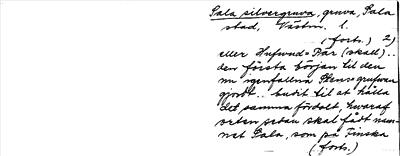 Sala silvergruva, gruva, Sala
stad, Västm. l.
(forts.) 2)
eller Hufwud=Bår (skall)..
den första början til den
nu igenfallna Stens=grufwan
gjordt.. budit til at hålla
det samma fördolt, hwaraf
orten sedan skal fådt nam-
net Sala, som på Finska
(forts.)